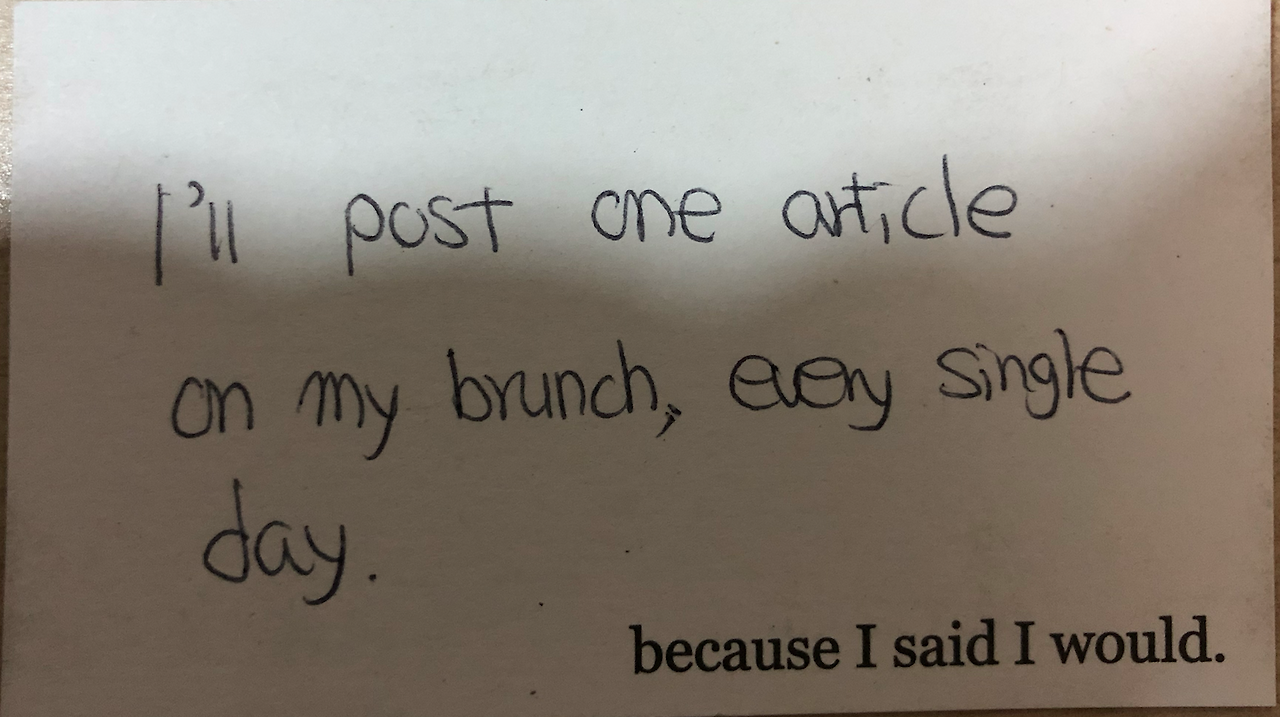 I'll post one article
on my brunch, every single
day.
because I said I would.